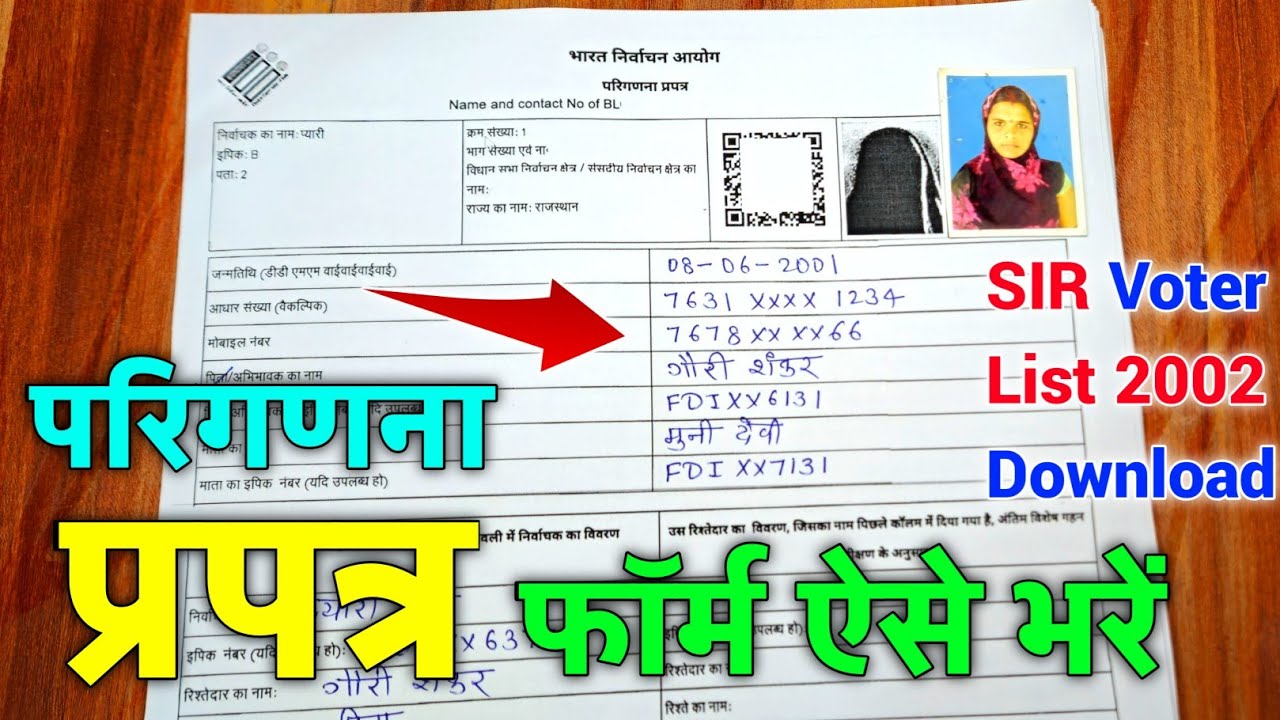 भारत निर्वाचन आयोग
परिगणना प्रपत्र
Name and contact No of BL
निर्वाचक का नाम: प्यारी
इपिक: B
पता: 2
क्रम संख्या: 1
भाग संख्या एवं ना
विधान सभा निर्वाचन क्षेत्र / संसदीय निर्वाचन क्षेत्र का
नाम:
राज्य का नाम: राजस्थान
जन्मतिथि (डीडी एमएम वाईवाईवाईवाई)
08-06-2001
आधार संख्या (वैकल्पिक)
7631 XXXX 1234
मोबाइल नंबर
7678 XX XX66
पिता/अभिभावक का नाम
गौरी शंकर
FDIXX6131
मुनी देवी
माता का इपिक नंबर (यदि उपलब्ध हो)
FDI XX7131
SIR Voter
List 2002
Download
परिगणना
प्रपत्र
फॉर्म ऐसे भरें
वली में निर्वाचक का विवरण
उस रिश्तेदार का विवरण, जिसका नाम पिछले कॉलम में दिया गया है, अंतिम विशेष गहन
इपिक नंबर (यदि
रिश्तेदार का नाम:
गौरी शंकर
पिता
रिश्तेदार का
रिश्ते का नाम: